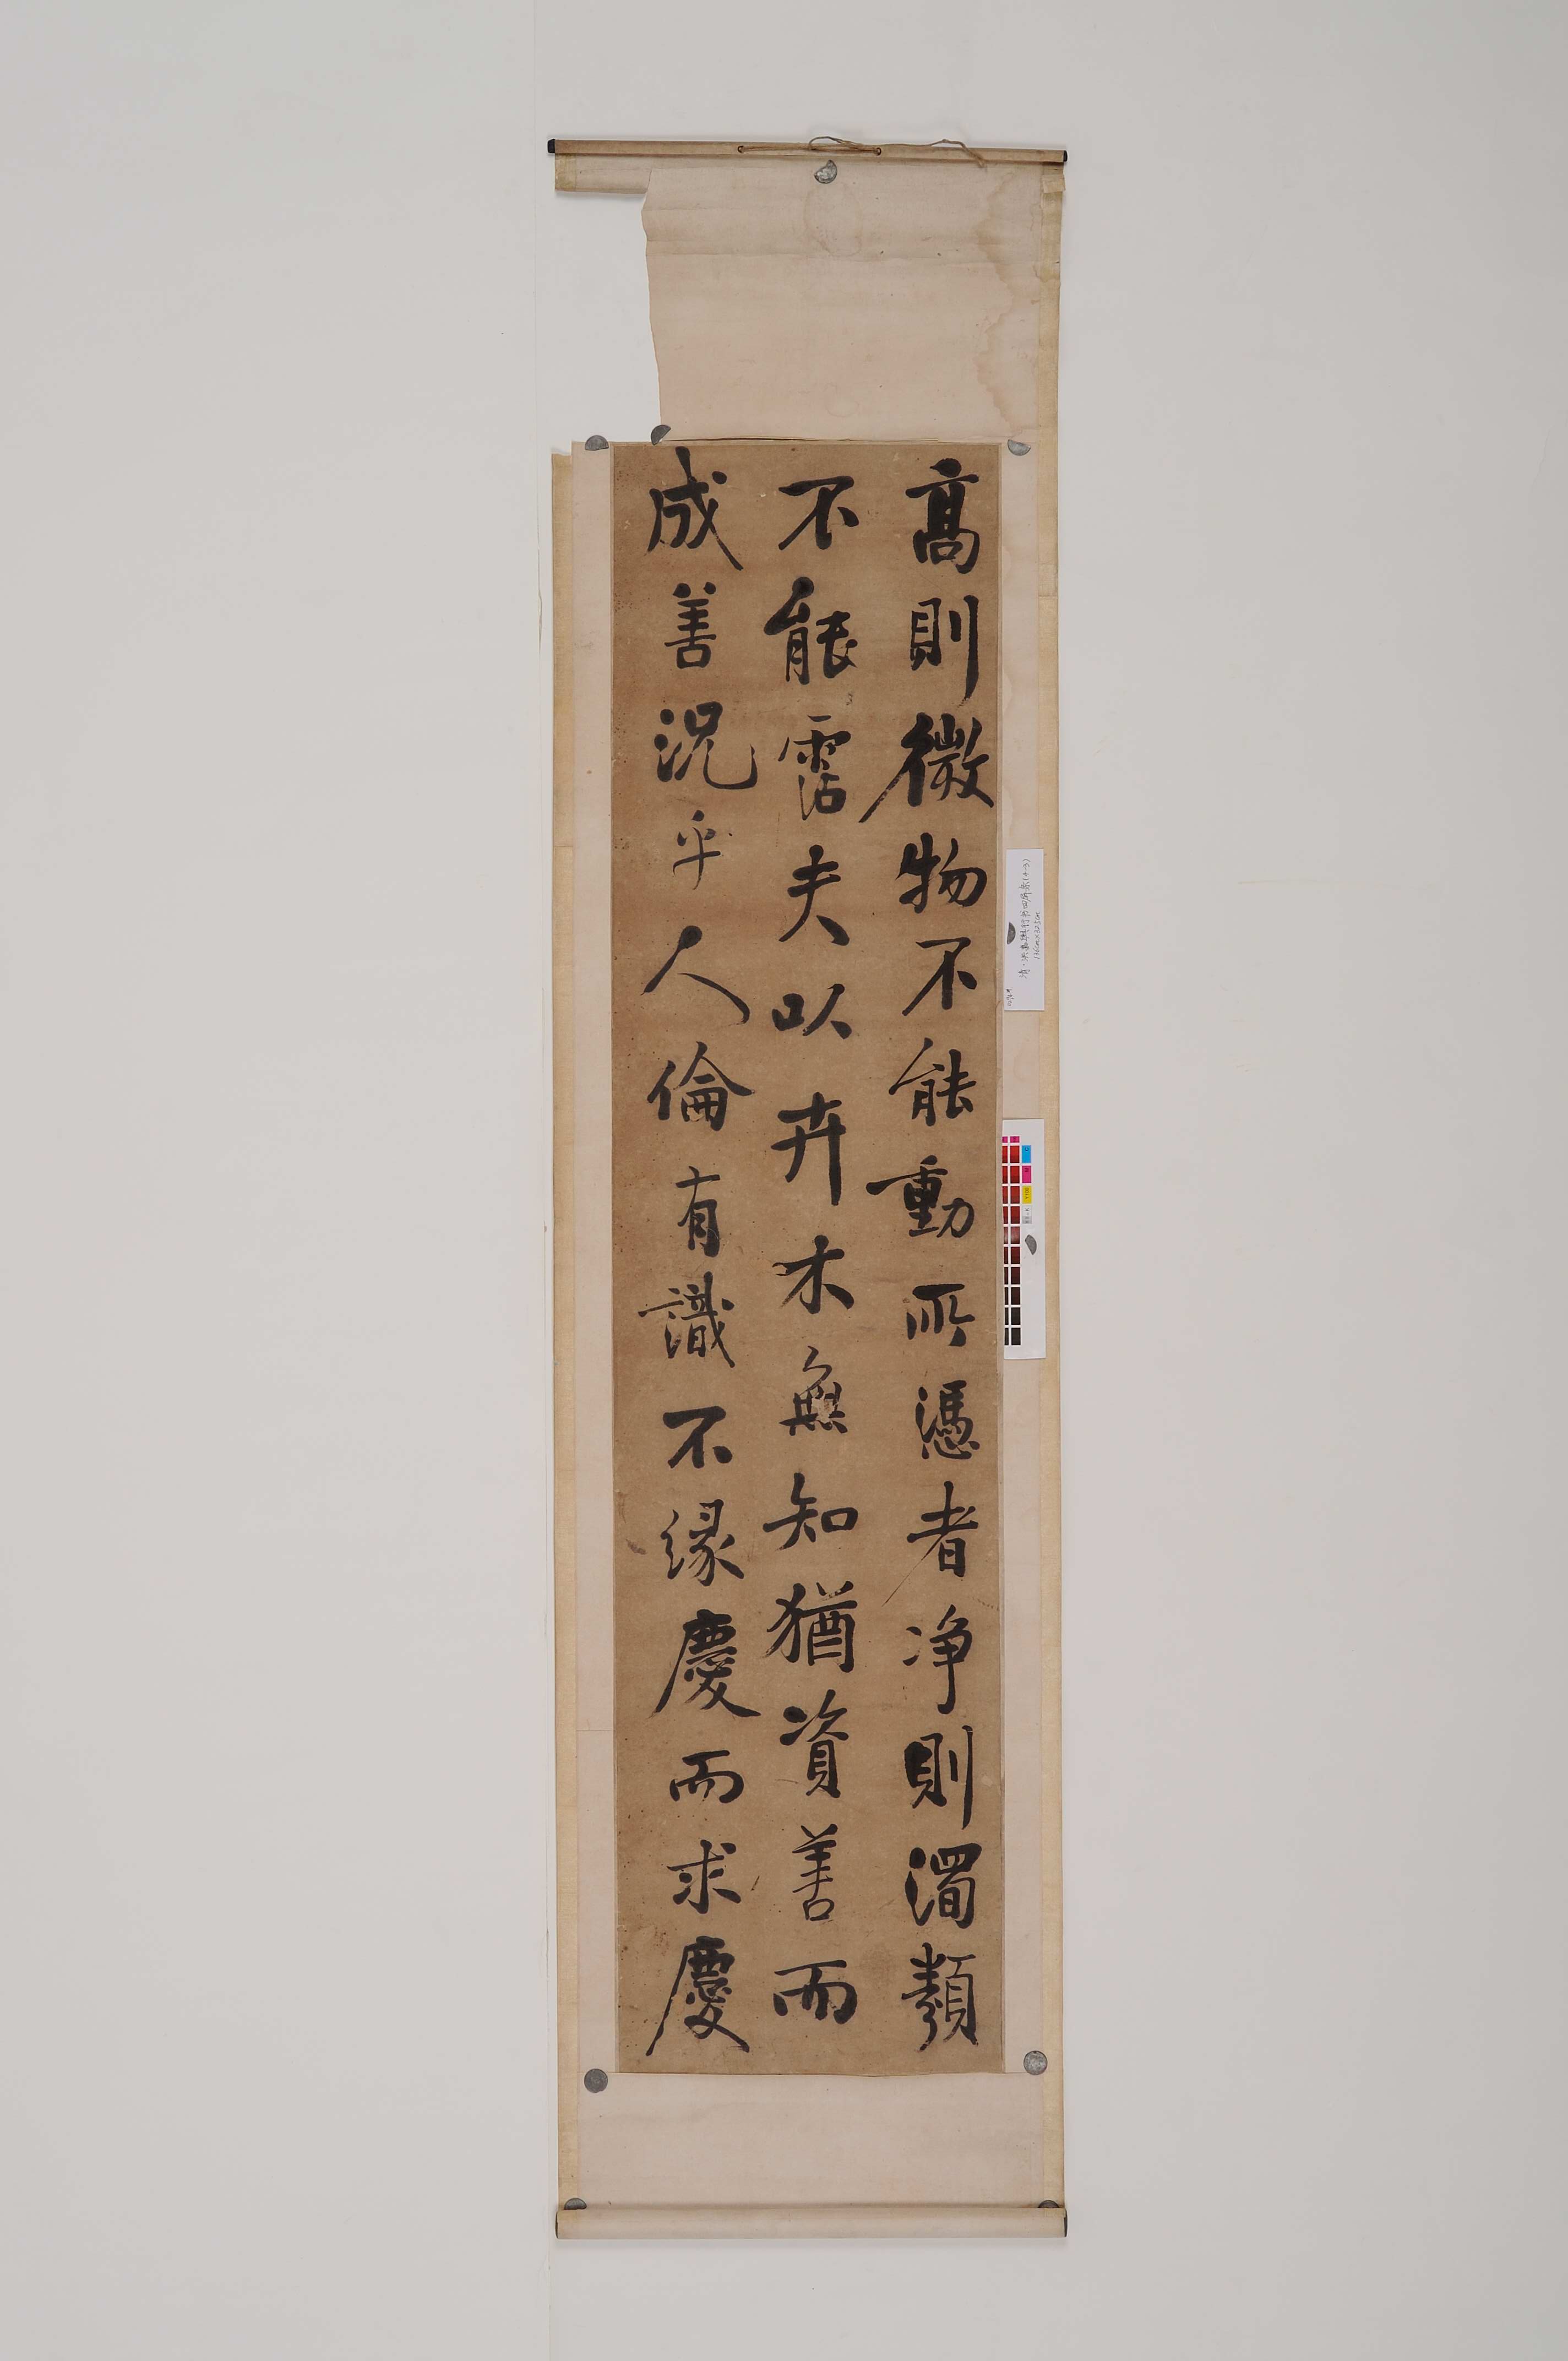 高則微物不能動所憑者净則濁類
不能霑夫以卉木無知猶資善而
成善况乎人倫有識不緣慶而求慶